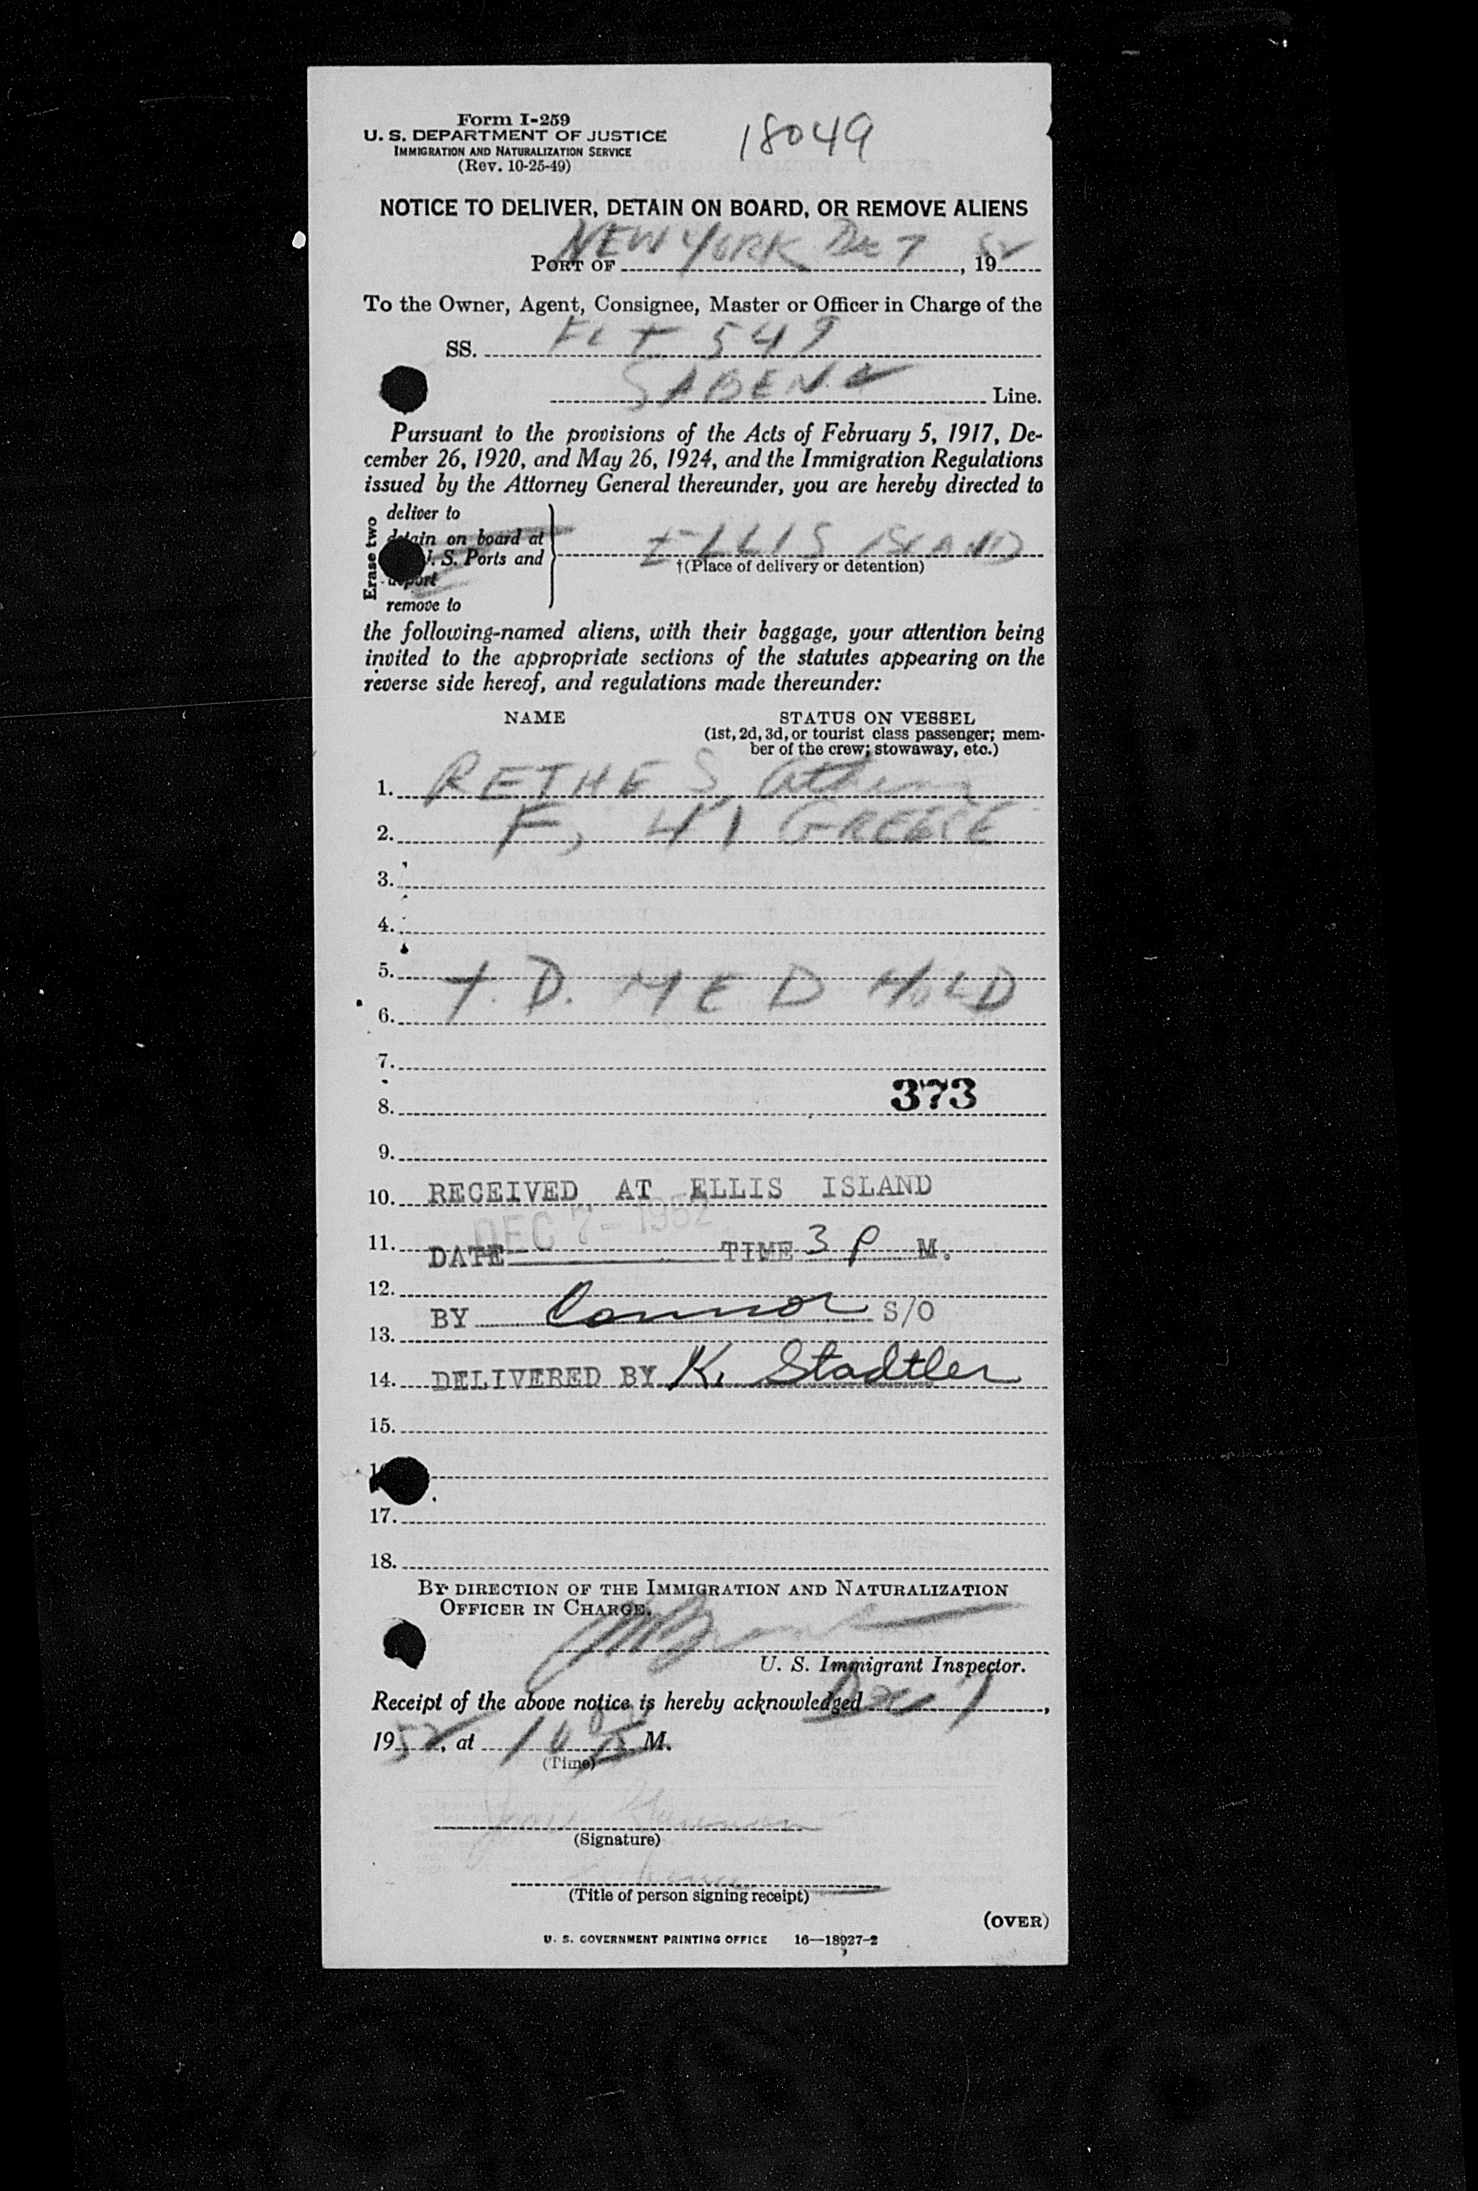 Form I-259
U. S. DEPARTMENT OF JUSTICE
IMMIGRATION AND NATURALIZATION SERVICE
(Rev. 10-25-49)
18049
NOTICE TO DELIVER, DETAIN ON BOARD, OR REMOVE ALIENS
PORT OF NEW YORK Dec 7, 1952
To the Owner, Agent, Consignee, Master or Officer in Charge of the
SS. FLT 549
SABENA Line.
Pursuant to the provisions of the Acts of February 5, 1917, De-
cember 26, 1920, and May 26, 1924, and the Immigration Regulations
issued by the Attorney General thereunder, you are hereby directed to
Erase two
deliver to
detain on board at
U. S. Ports and
deport
remove to
ELLIS ISLAND
†(Place of delivery or detention)
the following-named aliens, with their baggage, your attention being
invited to the appropriate sections of the statutes appearing on the
reverse side hereof, and regulations made thereunder:
NAME
STATUS ON VESSEL
(1st, 2d, 3d, or tourist class passenger; mem-
ber of the crew; stowaway, etc.)
1. RETHES,
2. F, 41 GREECE
3.
4.
5. T. D. MED HOLD
6.
7.
373
8.
9.
10. RECEIVED AT ELLIS ISLAND
DEC 7 - 1952
11. DATE TIME 3 P M.
12.
BY Connor S/O
13.
14. DELIVERED BY K. Stadtler
15.
17.
18.
BY DIRECTION OF THE IMMIGRATION AND NATURALIZATION
OFFICER IN CHARGE.
U. S. Immigrant Inspector.
Receipt of the above notice is hereby acknowledged Dec 7,
1952, at M.
(Time)
(Signature)
(Title of person signing receipt)
(OVER)
U. S. GOVERNMENT PRINTING OFFICE 16—18927-2